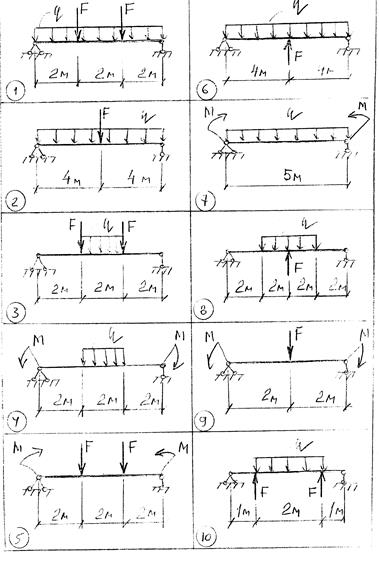 q F F
2м 2м 2м
1
F q
4м 4м
2
F q F
2м 2м 2м
3
M q M
2м 2м 2м
4
M F F M
2м 2м 2м
5
q
F
4м 4м
6
M q M
5м
7
q
F
2м 2м 2м 2м
8
M F M
2м 2м
9
q
F F
1м 2м 1м
10